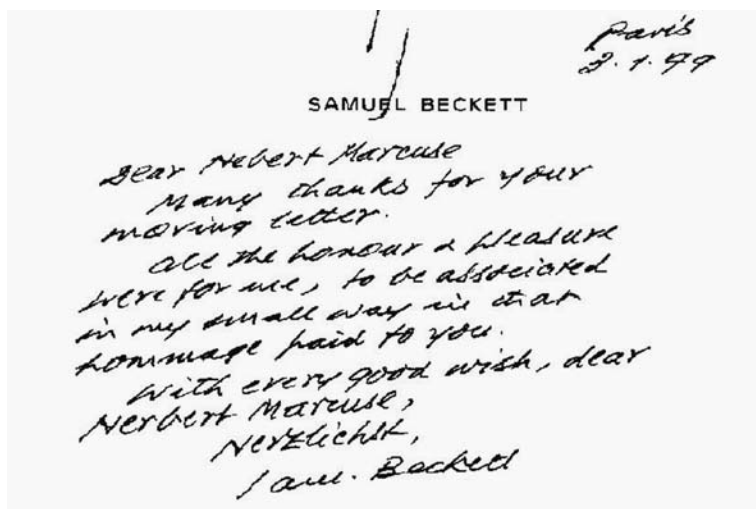 Paris
2.1.79
SAMUEL BECKETT
Dear Herbert Marcuse
Many thanks for your
moving letter.
All the honour & pleasure
were for me, to be associated
in my small way in that
hommage paid to you.
With every good wish, dear
Herbert Marcuse,
Herzlichst,
Sam. Beckett